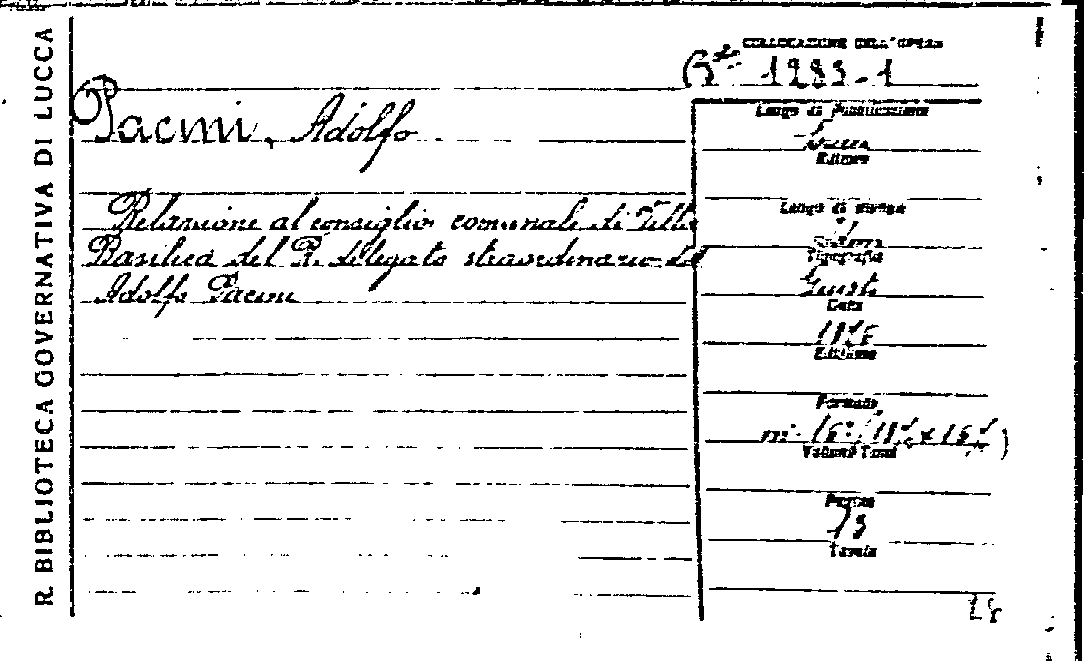 R. BIBLIOTECA GOVERNATIVA DI LUCCA
COLLOCAZIONE DELL'OPERA
Bta 1283-1
Pacini, Adolfo
Relazione al consiglio comunale di Villa
Basilica del R. delegato straordinario
Adolfo Pacini
Luogo di Pubblicazione
Lucca
Editore
Luogo di stampa
Tipografia
Giusti
Data
Edizione
Formato
in 16°
Volumi Tomi
Pagine
13
Tavole